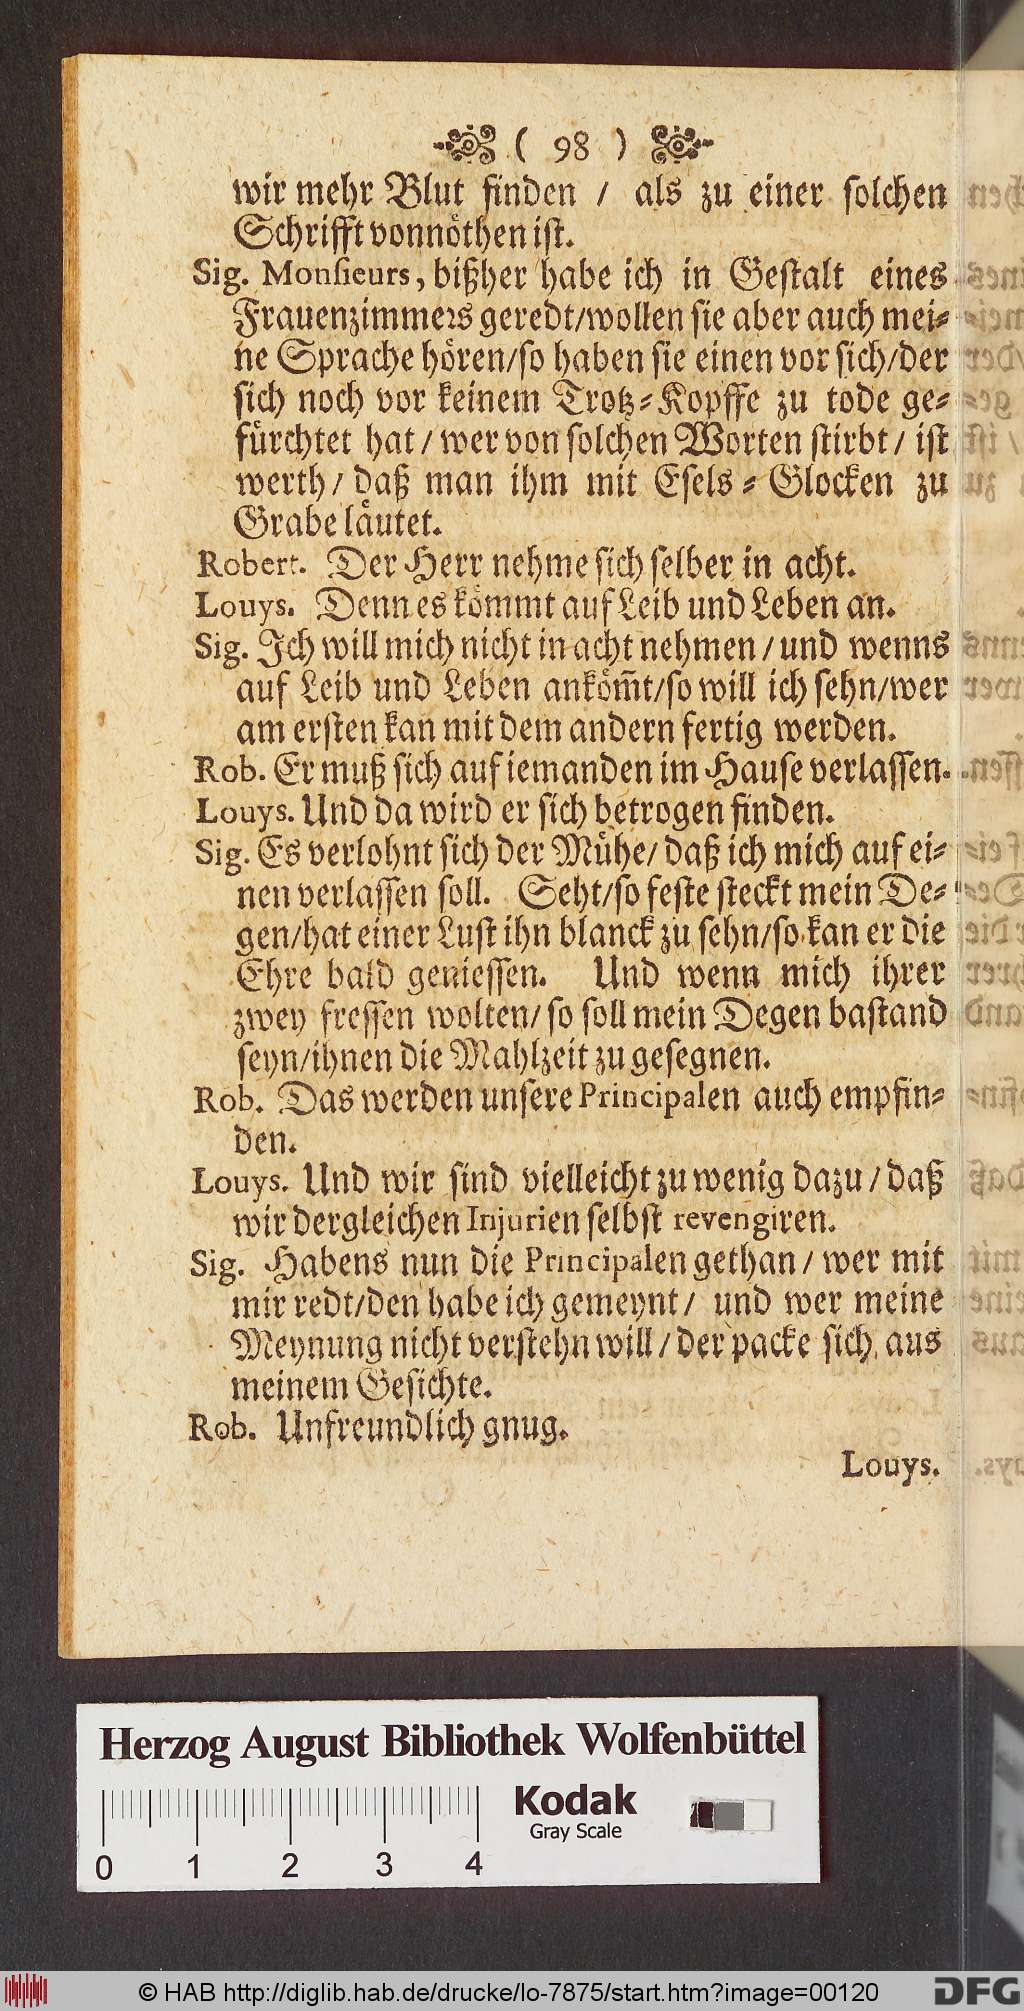 ( 98 )
wir mehr Blut finden / als zu einer solchen
Schrifft vonnöthen ist.
Sig. Monsieurs, bißher habe ich in Gestalt eines
Frauenzimmers geredt/wollen sie aber auch mei-
ne Sprache hören/so haben sie einen vor sich/der
sich noch vor keinem Trotz-Kopffe zu tode ge-
fürchtet hat / wer von solchen Worten stirbt / ist
werth / daß man ihm mit Esels-Glocken zu
Grabe läutet.
Robert. Der Herr nehme sich selber in acht.
Louys. Denn es kömmt auf Leib und Leben an.
Sig. Ich will mich nicht in acht nehmen / und wenns
auf Leib und Leben anköm̃t/so will ich sehn/wer
am ersten kan mit dem andern fertig werden.
Rob. Er muß sich auf iemanden im Hause verlassen.
Louys. Und da wird er sich betrogen finden.
Sig. Es verlohnt sich der Mühe/ daß ich mich auf ei-
nen verlassen soll. Seht/so feste steckt mein De-
gen/hat einer Lust ihn blanck zu sehn/so kan er die
Ehre bald geniessen. Und wenn mich ihrer
zwey fressen wolten/ so soll mein Degen bastand
seyn/ihnen die Mahlzeit zu gesegnen.
Rob. Das werden unsere Principalen auch empfin-
den.
Louys. Und wir sind vielleicht zu wenig dazu / daß
wir dergleichen Injurien selbst revengiren.
Sig. Habens nun die Principalen gethan / wer mit
mir redt/den habe ich gemeynt / und wer meine
Meynung nicht verstehn will / der packe sich aus
meinem Gesichte.
Rob. Unfreundlich gnug.
Louys.
Herzog August Bibliothek Wolfenbüttel
Kodak
Gray Scale
0 1 2 3 4
© HAB http://diglib.hab.de/drucke/lo-7875/start.htm?image=00120
DFG